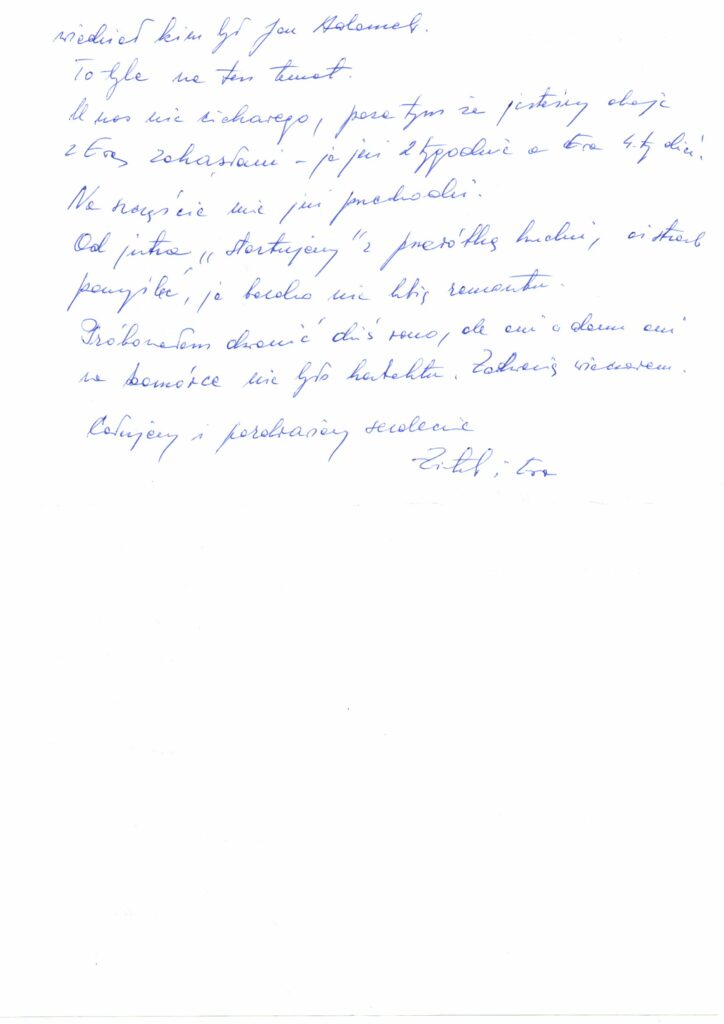 wiedział kim był Jan Adamek.
To tyle na ten temat.
U nas nic ciekawego, poza tym że jesteśmy oboje
z Ewą zakasłani – ja już 2 tygodnie a Ewa 4-ty dzień.
Na szczęście mnie już przechodzi.
Od jutra „startujemy” z przeróbką kuchni, aż strach
pomyśleć, ja bardzo nie lubię remontu.
Próbowałem dzwonić dziś rano, ale ani w domu ani
na komórce nie było kontaktu. Zadzwonię wieczorem.
Całujemy i pozdrawiamy serdecznie
i Ewa